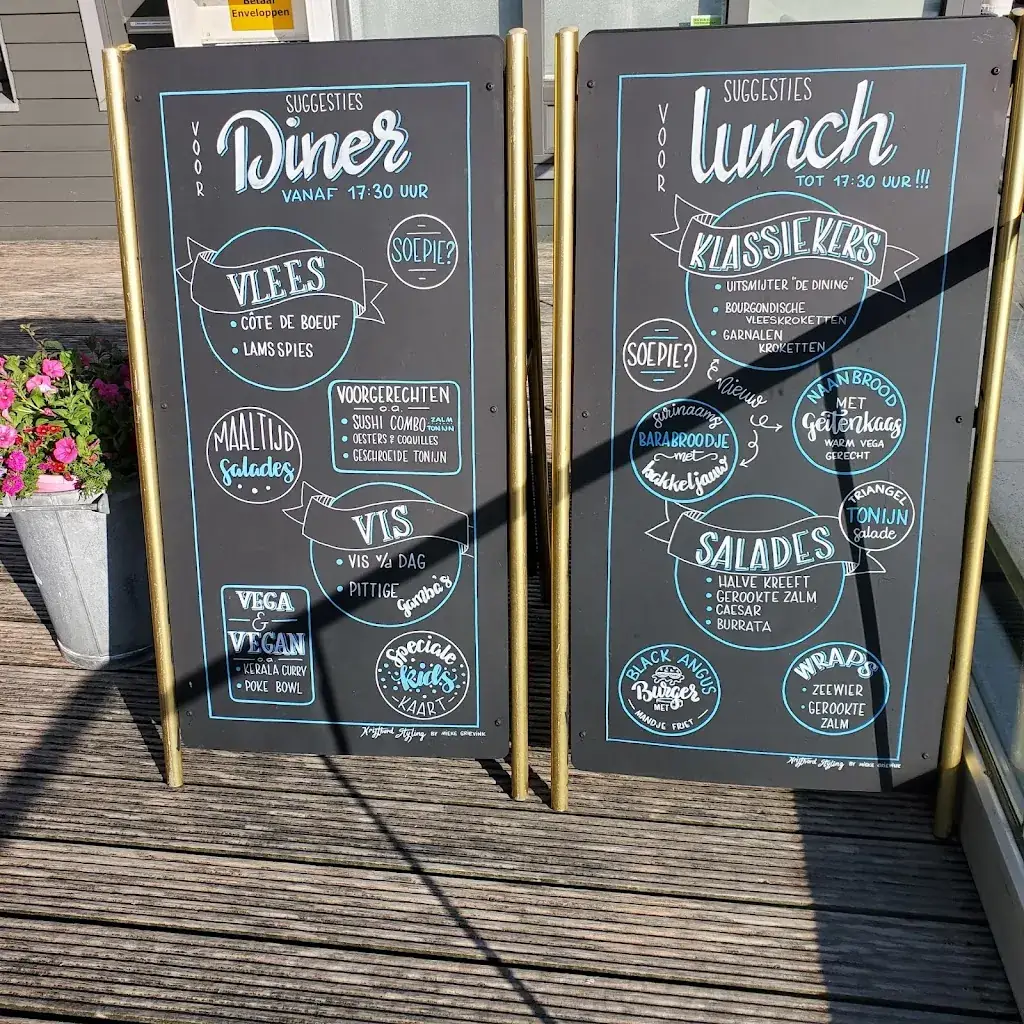 Betaal
Enveloppen
SUGGESTIES
VOOR
Diner
VANAF 17:30 UUR
SOEPIE?
VLEES
• CÔTE DE BOEUF
• LAMSSPIES
VOORGERECHTEN
o.a.
• SUSHI COMBO ZALM TONIJN
• OESTERS & COQUILLES
• GESCHROEIDE TONIJN
MAALTIJD
Salades
VIS
• VIS v/d DAG
• PITTIGE Gamba's
VEGA
&
VEGAN
o.a.
• KERALA CURRY
• POKE BOWL
Speciale
kids
KAART
Krijtbord Styling BY MIEKE GRIEVINK
SUGGESTIES
VOOR
lunch
TOT 17:30 UUR!!!
KLASSIEKERS
• UITSMIJTER "DE DINING"
• BOURGONDISCHE
VLEESKROKETTEN
• GARNALEN
KROKETTEN
SOEPIE?
Nieuw
Surinaams
BARABROODJE
met
bakkeljauw
NAANBROOD
MET
Geitenkaas
WARM VEGA
GERECHT
TRIANGEL
TONIJN
Salade
SALADES
• HALVE KREEFT
• GEROOKTE ZALM
• CAESAR
• BURRATA
BLACK ANGUS
Burger
MET
MANDJE FRIET
WRAPS
• ZEEWIER
• GEROOKTE
ZALM
Krijtbord Styling BY MIEKE GRIEVINK